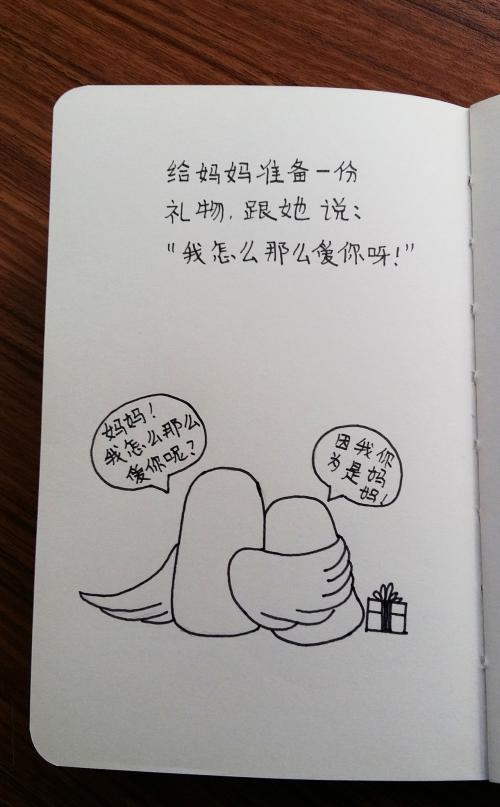 给妈妈准备一份
礼物,跟她说:
“我怎么那么爱你呀!”
妈妈!
我怎么那么
爱你呢?
因我你
为是妈
妈!